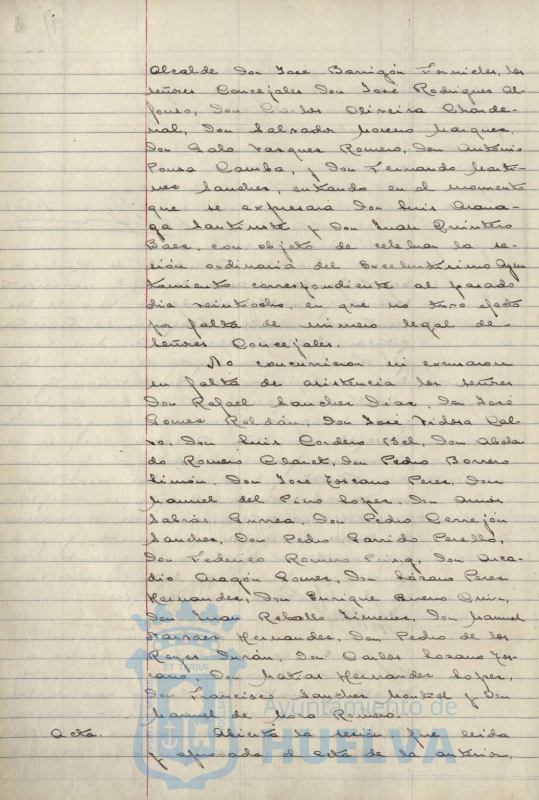 Alcalde Don José Barrigón Fornieles, los
señores Concejales Don José Rodríguez Al-
fonso, Don Carlos Oliveira Charde-
nal, Don Salvador Moreno Marquez,
Don Galo Vazquez Romero, Don Antonio
Pousa Camba, y Don Fernando Marti-
nez Sanchez, entrando en el momento
que se expresará Don Luis Arana-
ga Santiuste y Don Juan Quintero
Baez, con objeto de celebrar la se-
sión ordinaria del Excelentísimo Ayun
tamiento correspondiente al pasado
dia veintiocho, en que no tuvo efecto
por falta de número legal de
señores Concejales.
No concurrieron ni excusaron
su falta de asistencia los señores
Don Rafael Sanchez Diaz, Don José
Gomez Roldán, Don José Vidosa Cal-
vo, Don Luis Cordero Bel, Don Abelar
do Romero Claret, Don Pedro Borrero
Limón, Don José Toscano Perez, Don
Manuel del Pino Lopez, Don Amós
Sabrás Gurrea, Don Pedro Cerrejón
Sanchez, Don Pedro Garrido Perelló,
Don Federico Romero Don Arca-
dio Aragón Gomez, Don Lázaro Perez
Hernandez, Don Enrique Bueno
Don Juan Rebollo Jimenez, Don Manuel
Narvaez Hernandez, Don Pedro de los
Reyes Durán, Don Carlos Lozano Tos-
cano, Don Matías Hernandez Lopez,
Don Francisco Sanchez Montiel y Don
Manuel de Mora Romero.
Acta. Abierta la sesión fue leida
y aprobada el acta de la anterior,
Ayuntamiento de
HUELVA